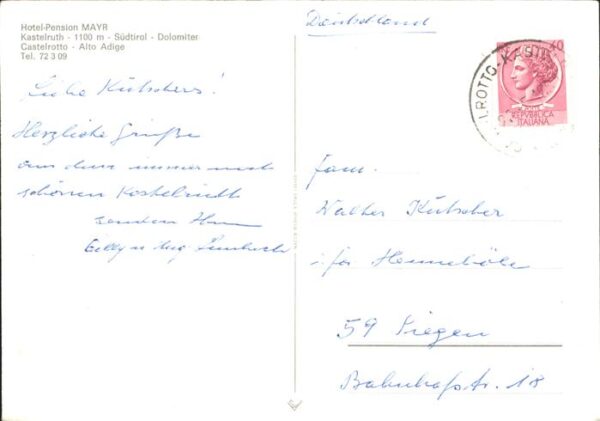 Hotel-Pension MAYR
Kastelruth - 1100 m - Südtirol - Dolomiter
Castelrotto - Alto Adige
Tel. 72 3 09
Liebe Kutschers!
Herzliche Grüße
aus dem immer noch
schönen Kastelruth
senden Ihnen
Deutschland
40
POSTE
REPVBBLICA
ITALIANA
Fam.
Walter Kutscher
59 Siegen
Bahnhofstr. 18